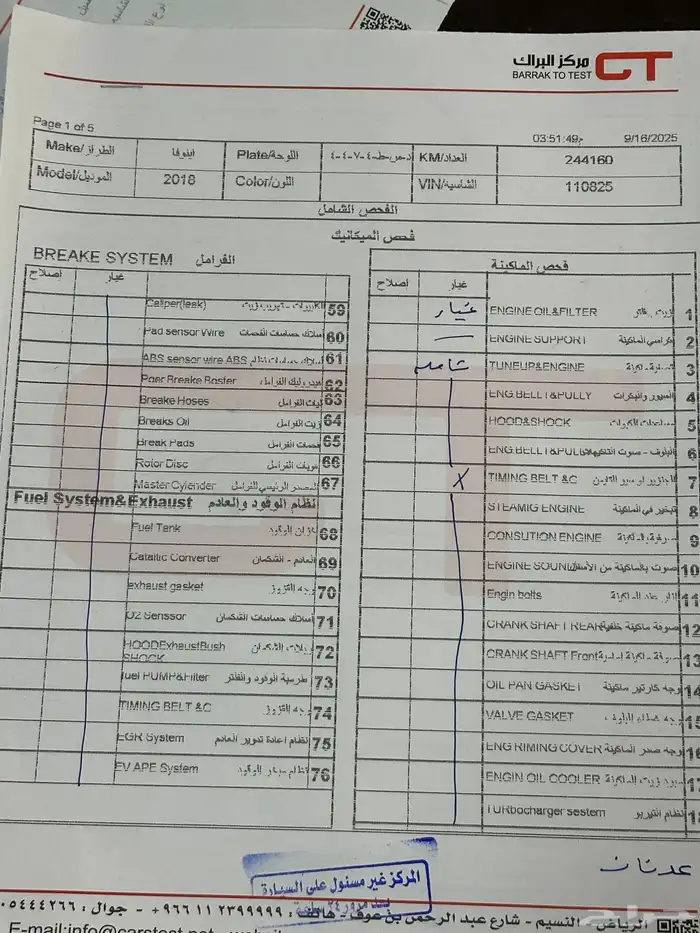 مركز البراك
BARRAK TO TEST
CT
Page 1 of 5
03:51:49م 9/16/2025
Make/الطراز اينوفا Plate/اللوحة KM/العداد 244160
Model/الموديل 2018 Color/اللون VIN/الشاسية 110825
الفحص الشامل
فحص الميكانيك
BREAKE SYSTEM الفرامل
اصلاح غيار
Caliper(leak) 59
Pad sensor Wire 60
ABS sensor wire ABS 61
Poer Breake Boster هيدروليك الفرامل 62
Breake Hoses ليات الفرامل 63
Breaks Oil زيت الفرامل 64
Break Pads فحمات الفرامل 65
Rotor Disc هوبات الفرامل 66
Master Cylender الماستر الرئيسي للفرامل 67
Fuel System&Exhaust نظام الوقود والعادم
Fuel Tenk خزان الوقود 68
Catalitic Converter العادم - الشكمان 69
exhaust gasket 70
O2 Senssor اسلاك حساسات الشكمان 71
HOODExhaustBush SHOCK 72
fuel PUMP&Filter طرمبة الوقود والفلتر 73
TIMING BELT &C 74
EGR System نظام اعادة تدوير العادم 75
EV APE System 76
فحص الماكينة
اصلاح غيار
غيار ENGINE OIL&FILTER 1
ENGINE SUPPORT كراسي الماكينة 2
شامله TUNEUP&ENGINE 3
ENG.BELT&PULLY السيور والبكرات 4
HOOD&SHOCK 5
ENG.BELT&PULL 6
X TIMING BELT &C 7
STEAMIG ENGINE تبخير في الماكينة 8
CONSUTION ENGINE 9
ENGINE SOUND صوت بالماكينة من الأسفل 10
Engin bolts 11
CRANK SHAFT REAR صوفة ماكينة خلفية 12
CRANK SHAFT Front 13
OIL PAN GASKET وجه كارتير ماكينة 14
VALVE GASKET 15
ENG RIMING COVER وجه صدر الماكينة 16
ENGIN OIL COOLER 17
TURbocharger sestem نظام التيربو 18
عدنان
المركز غير مسئول على السيارة
بعد مرور ٢٤ ساعة
الرياض - النسيم - شارع عبد الرحمن بن عوف - هاتف: ٩٦٦١١٢٣٩٩٩٩٩+ - جوال: ٠٥٤٤٤٢٦٦
E-mail:info@carstest.net